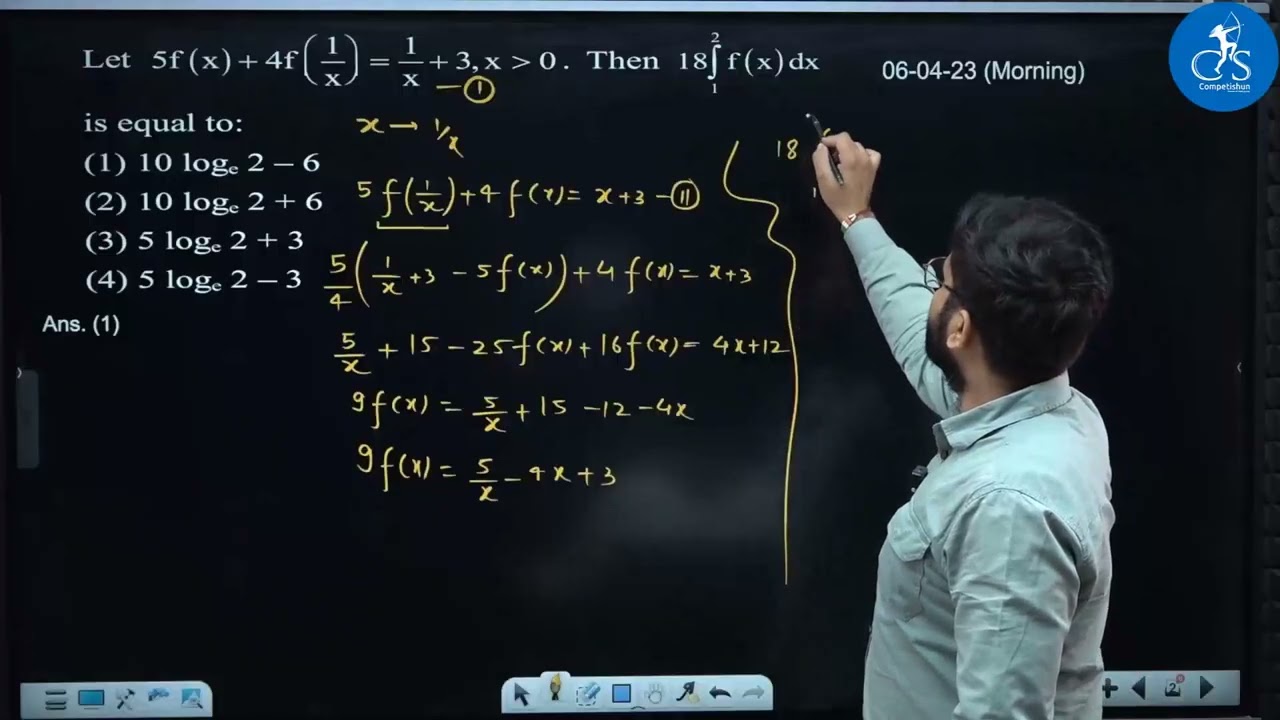 Let 5f(x) + 4f(1/x) = 1/x + 3, x > 0. Then 18∫₁² f(x) dx
06-04-23 (Morning)
CS
Competishun
— ①
is equal to:
(1) 10 logₑ 2 – 6
(2) 10 logₑ 2 + 6
(3) 5 logₑ 2 + 3
(4) 5 logₑ 2 – 3
Ans. (1)
x → 1/x
5 f(1/x) + 4 f(x) = x+3 — ⑪
5/4 (1/x + 3 - 5f(x)) + 4 f(x) = x+3
5/x + 15 - 25f(x) + 16f(x) = 4x+12
9f(x) = 5/x + 15 - 12 - 4x
9f(x) = 5/x - 4x + 3
18
1
2